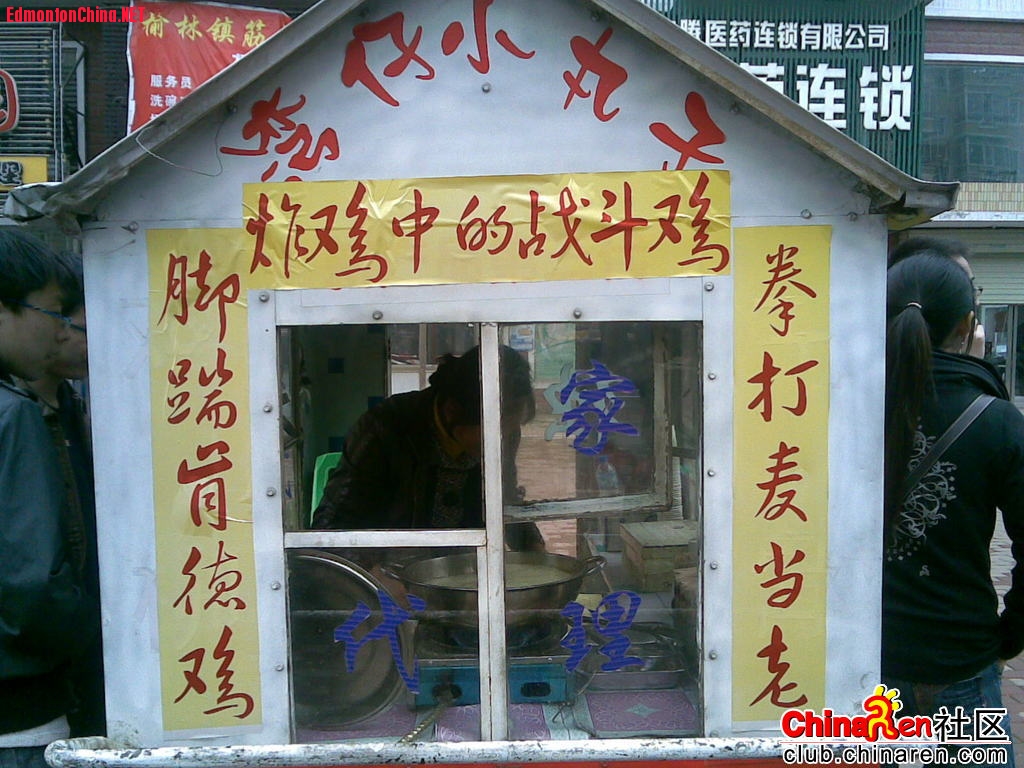 EdmontonChina.NET
榆林镇筋
服务员
洗碗
腾医药连锁有限公司
药连锁
小丸
炸鸡中的战斗鸡
拳打麦当老
脚踹肯德鸡
家
代
理
ChinaRen社区
club.chinaren.com